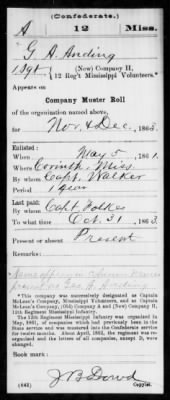 (Confederate.)
A 12 Miss.
G A Anding
1 Sgt, (New) Company H,
12 Reg't Mississippi Volunteers.*
Appears on
Company Muster Roll
of the organization named above,
for Nov & Dec, 1863.
Enlisted:
When May 5, 1861.
Where Corinth, Miss
By whom Capt. Walker
Period 1 year
Last paid:
By whom Capt. Folkes
To what time Oct. 31, 1863.
Present or absent Present
Remarks:
Geo. A. Anding
*This company was successively designated as Captain
McLean's Company, Mississippi Volunteers, and as Captain
McLean's Company, (Old) Company A and (New) Company H,
12th Regiment Mississippi Infantry.
The 12th Regiment Mississippi Infantry was organized in
May, 1861, of companies which had previously been in the
State service and was mustered into the Confederate service
for twelve months. About April, 1862, the regiment was re-
organized and the letters of all companies, except D, were
changed.
Book mark:
(642) J B Dowd
Copyist.